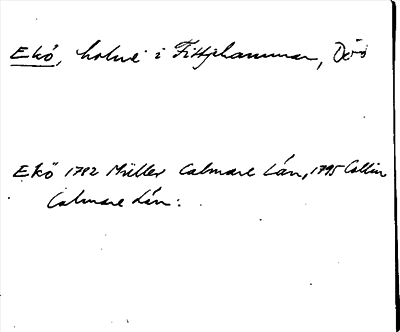 Ekö, holme i Fittjehammar, Dörö
Ekö 1782 Müller Calmare Län, 1795 Collin
Calmare Län: